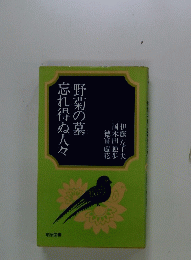 野菊の墓
忘れ得ぬ人々
伊藤左千夫
国木田独歩
徳冨蘆花